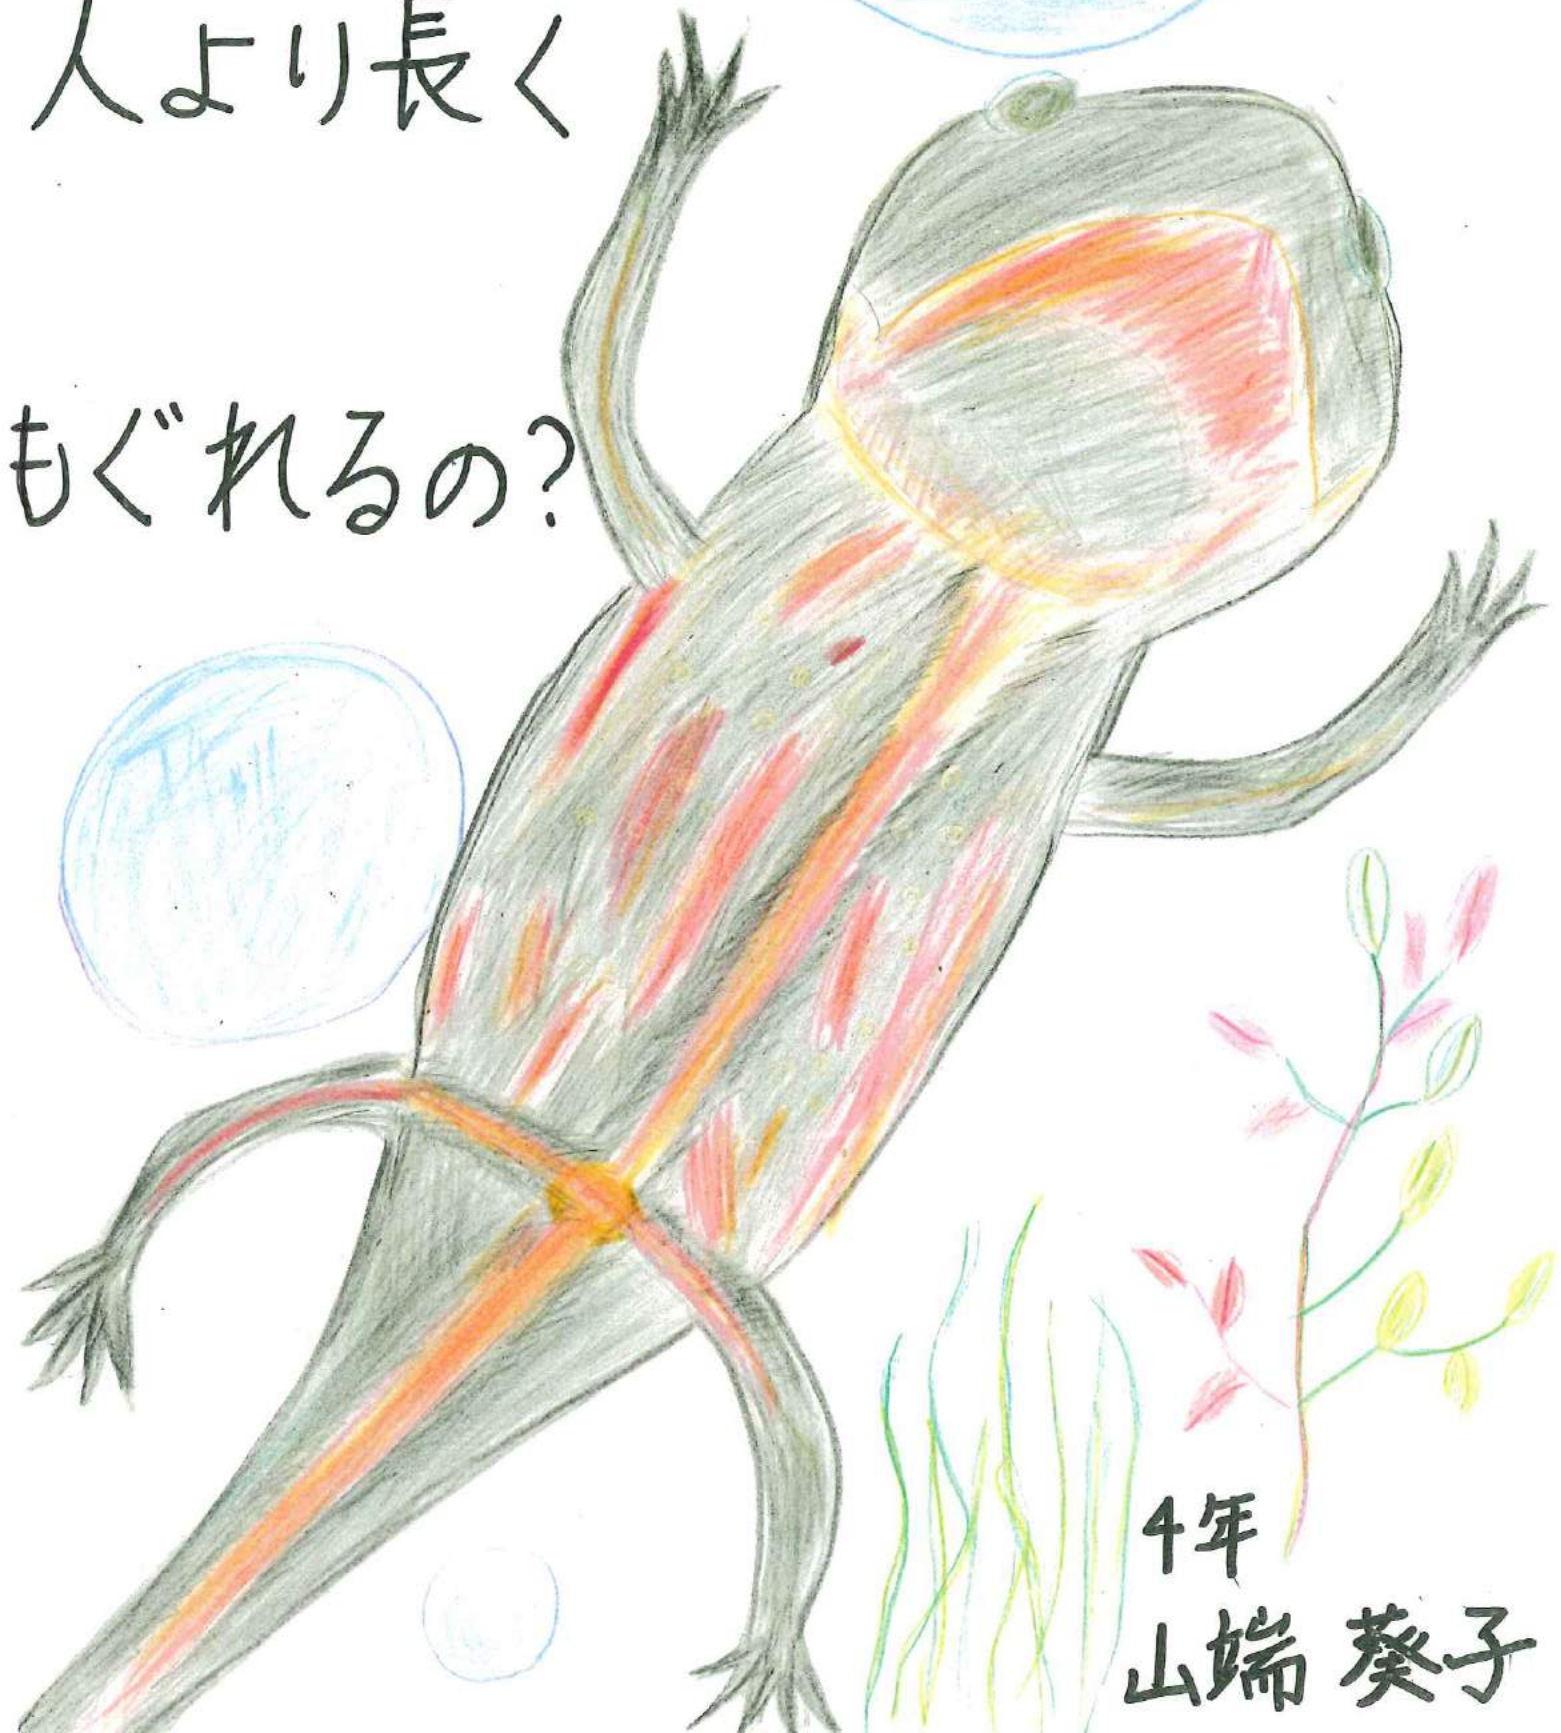 人より長く
もぐれるの?
4年
山端 葵子